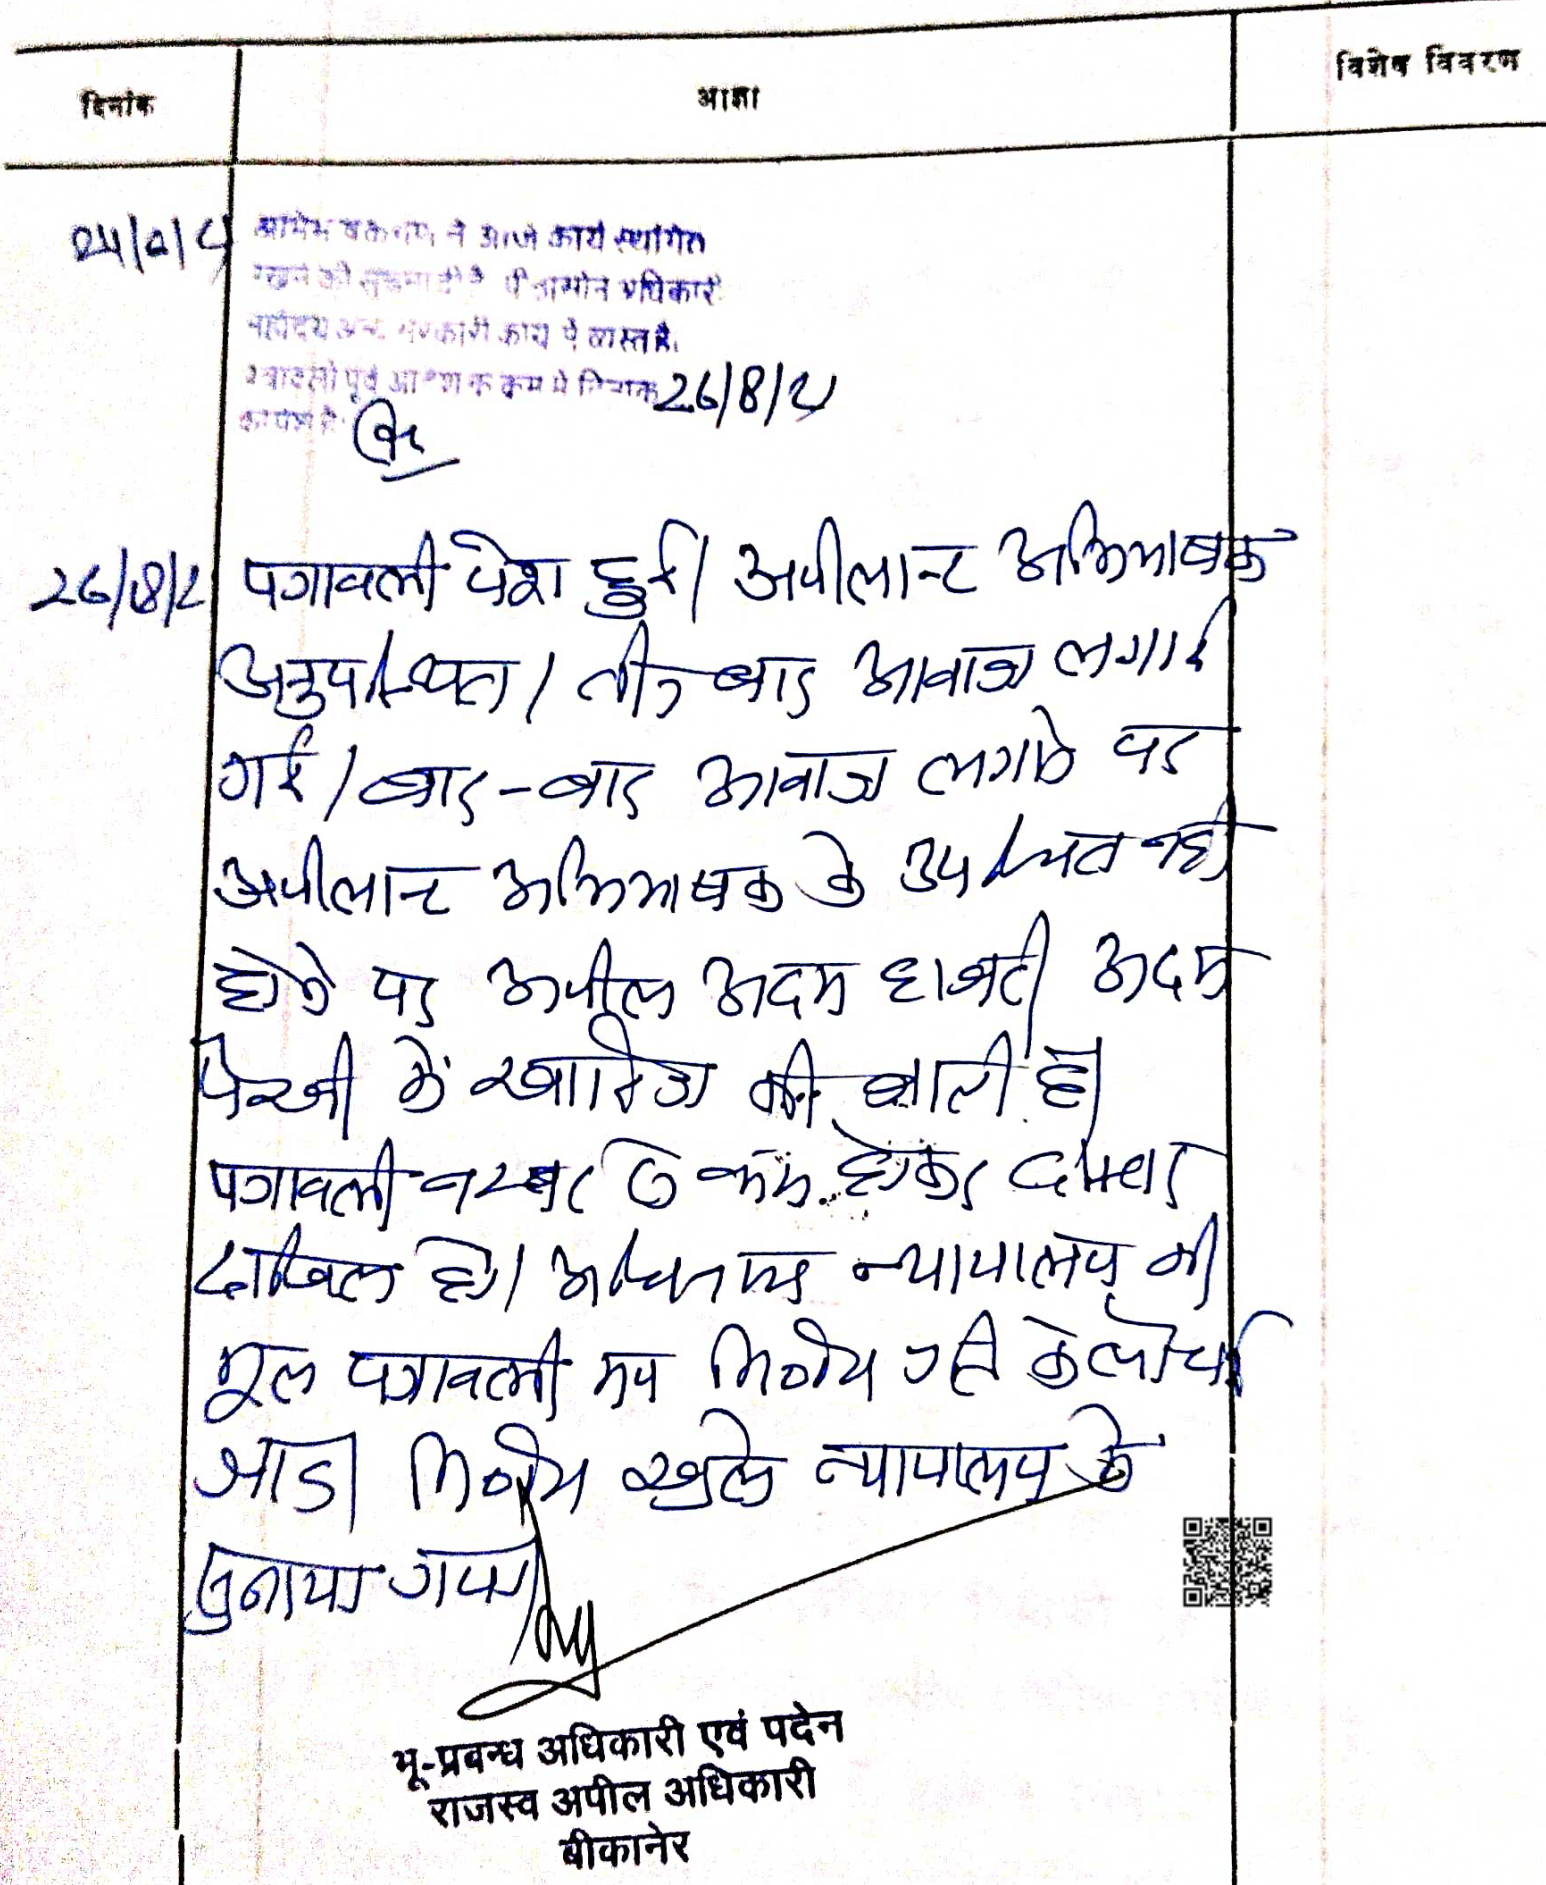 दिनांक आज्ञा विशेष विवरण
ने आज कार्य स्थगित
रखने की अधिकारी
सरकारी कार्य में व्यस्त है।
पूर्व क्रम में दिनांक 26/8/21
को पेश है।
26/8/21 पत्रावली पेश हुई। अपीलान्ट अभिभाषक
अनुपस्थित। तीन बार आवाज लगाई
गई। बार-बार आवाज लगाने पर
अपीलान्ट अभिभाषक के उपस्थित नहीं
होने पर अपील अदम हाजरी अदम
पैरवी में खारिज की जाती है।
पत्रावली नम्बर से कम होकर दफ्तर
दाखिल हो। अधिनस्थ न्यायालय की
मूल पत्रावली मय निर्णय प्रति के लौटाई
जावे। निर्णय खुले न्यायालय में
सुनाया गया।
भू-प्रबन्ध अधिकारी एवं पदेन
राजस्व अपील अधिकारी
बीकानेर